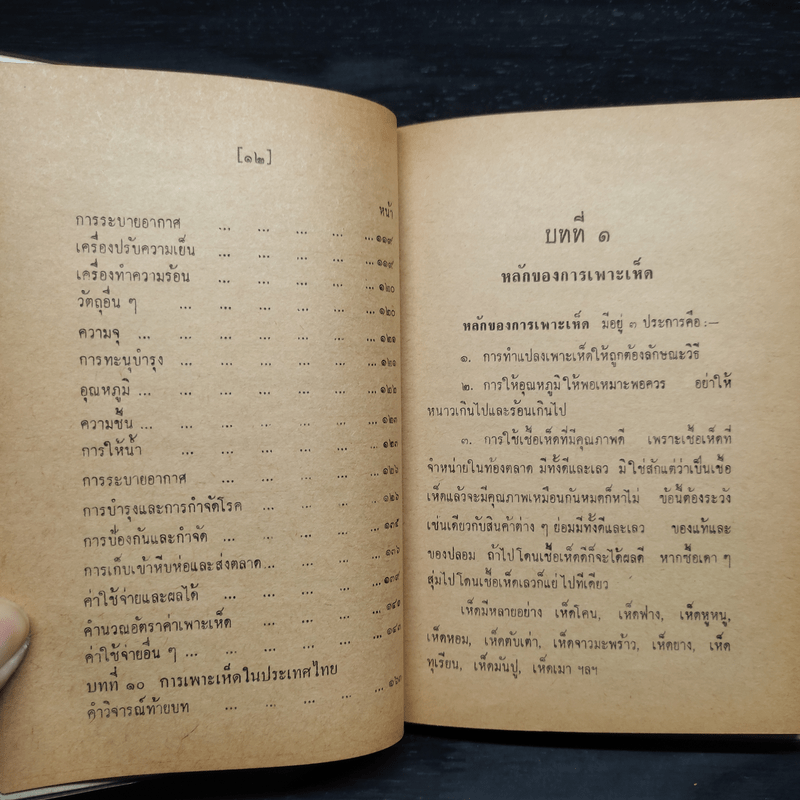 [๑๒]
หน้า
การระบายอากาศ ... ... ... ... ... ๑๑๙
เครื่องปรับความเย็น ... ... ... ... ... ๑๑๙
เครื่องทำความร้อน ... ... ... ... ... ๑๒๐
วัตถุอื่น ๆ ... ... ... ... ... ... ๑๒๐
ความจุ ... ... ... ... ... ... ๑๒๑
การทะนุบำรุง ... ... ... ... ... ๑๒๑
อุณหภูมิ ... ... ... ... ... ... ๑๒๒
ความชื้น ... ... ... ... ... ... ๑๒๓
การให้น้ำ ... ... ... ... ... ๑๒๓
การระบายอากาศ ... ... ... ... ... ๑๒๖
การบำรุงและการกำจัดโรค ... ... ... ... ๑๒๖
การป้องกันและกำจัด ... ... ... ... ๑๓๕
การเก็บเข้าหีบห่อและส่งตลาด... ... ... ... ๑๓๖
ค่าใช้จ่ายและผลได้ ... ... ... ... ... ๑๓๙
คำนวณอัตราค่าเพาะเห็ด ... ... ... ... ๑๔๑
ค่าใช้จ่ายอื่น ๆ ... ... ... ... ... ๑๔๓
บทที่ ๑๐ การเพาะเห็ดในประเทศไทย
คำวิจารณ์ท้ายบท ... ... ... ... ... ๑๖๓
บทที่ ๑
หลักของการเพาะเห็ด
หลักของการเพาะเห็ด มีอยู่ ๓ ประการคือ :—
๑. การทำแปลงเพาะเห็ดให้ถูกต้องลักษณะวิธี
๒. การให้อุณหภูมิให้พอเหมาะพอควร อย่าให้
หนาวเกินไปและร้อนเกินไป
๓. การใช้เชื้อเห็ดที่มีคุณภาพดี เพราะเชื้อเห็ดที่
จำหน่ายในท้องตลาด มีทั้งดีและเลว มิใช่สักแต่ว่าเป็นเชื้อ
เห็ดแล้วจะมีคุณภาพเหมือนกันหมดก็หาไม่ ข้อนี้ต้องระวัง
เช่นเดียวกับสินค้าต่าง ๆ ย่อมมีทั้งดีและเลว ของแท้และ
ของปลอม ถ้าไปโดนเชื้อเห็ดดีก็จะได้ผลดี หากซื้อเดา ๆ
สุ่มไปโดนเชื้อเห็ดเลวก็แย่ไปทีเดียว
เห็ดมีหลายอย่าง เห็ดโคน, เห็ดฟาง, เห็ดหูหนู,
เห็ดหอม, เห็ดตับเต่า, เห็ดจาวมะพร้าว, เห็ดยาง, เห็ด
ทุเรียน, เห็ดมันปู, เห็ดเมา ฯลฯ